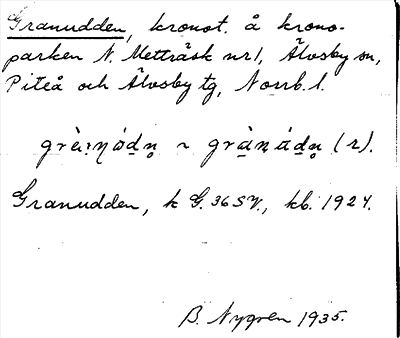 Granudden, kronot. å krono-
parken N. Metträsk nr 1, Älvsby sn,
Piteå och Älvsby tg, Norrb. l.
~ (r).
Granudden, k G. 36 SV., kb. 1924.
B. Nygren 1935.